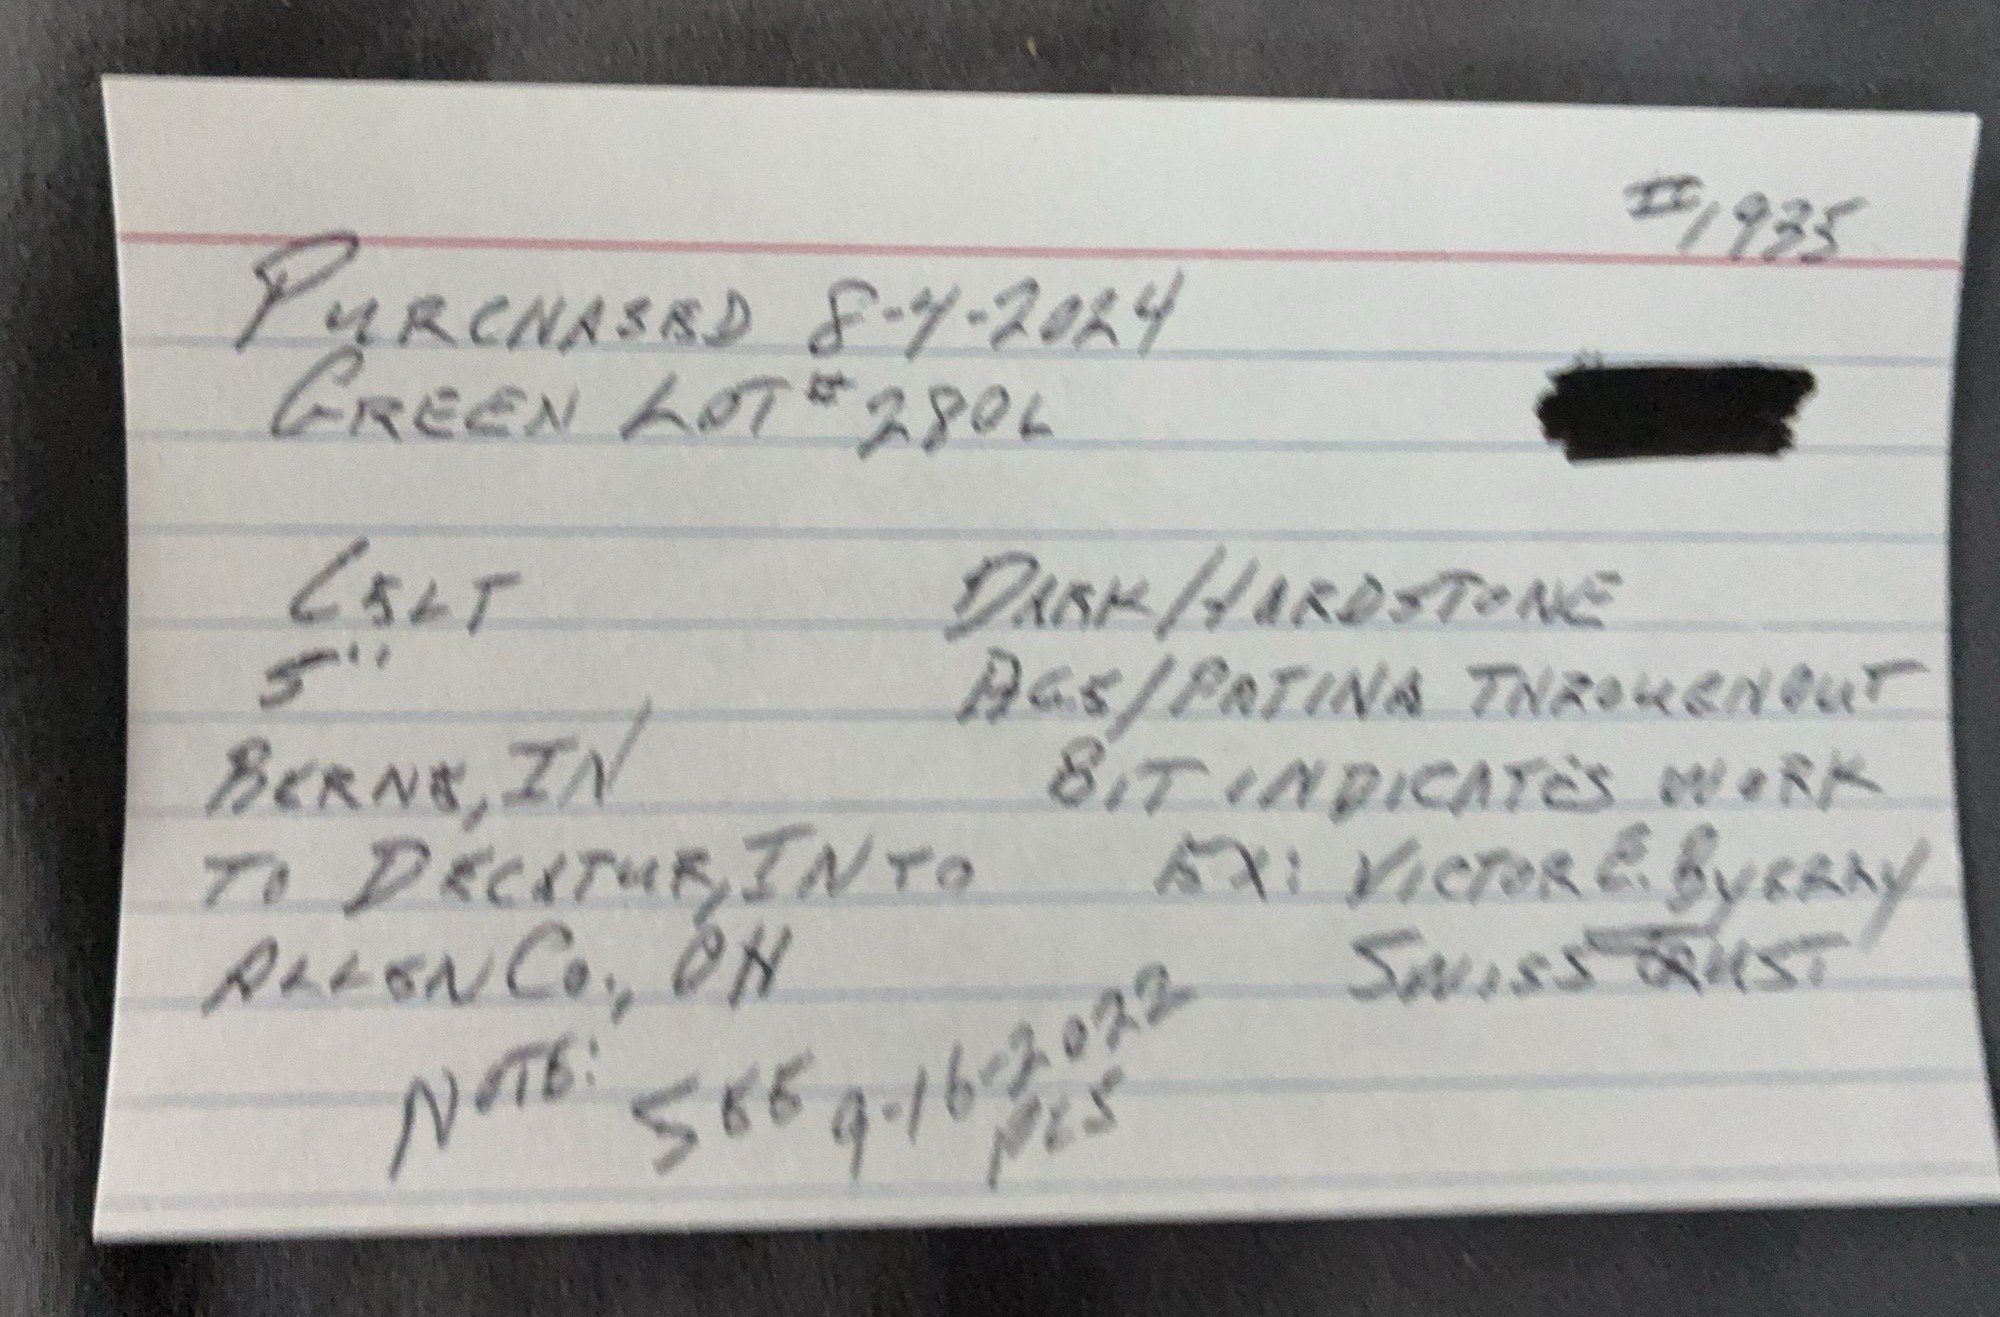 II, 935
PURCHASED 8-4-2024
GREEN LOT # 280L
CELT
5"
BERNE, IN
TO DECATUR, IN TO
ALLEN CO., OH
DARK/HARDSTONE
AGE/PATINA THROUGHOUT
BIT INDICATES WORK
EX: VICTOR E. BYERLY
SWISS
NOTE: SEE 9-16-2022